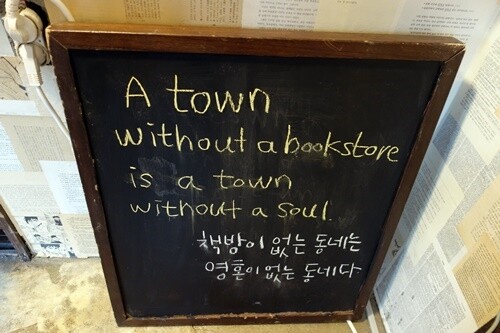 A town
without a bookstore
is a town
without a soul.
책방이 없는 동네는
영혼이 없는 동네다